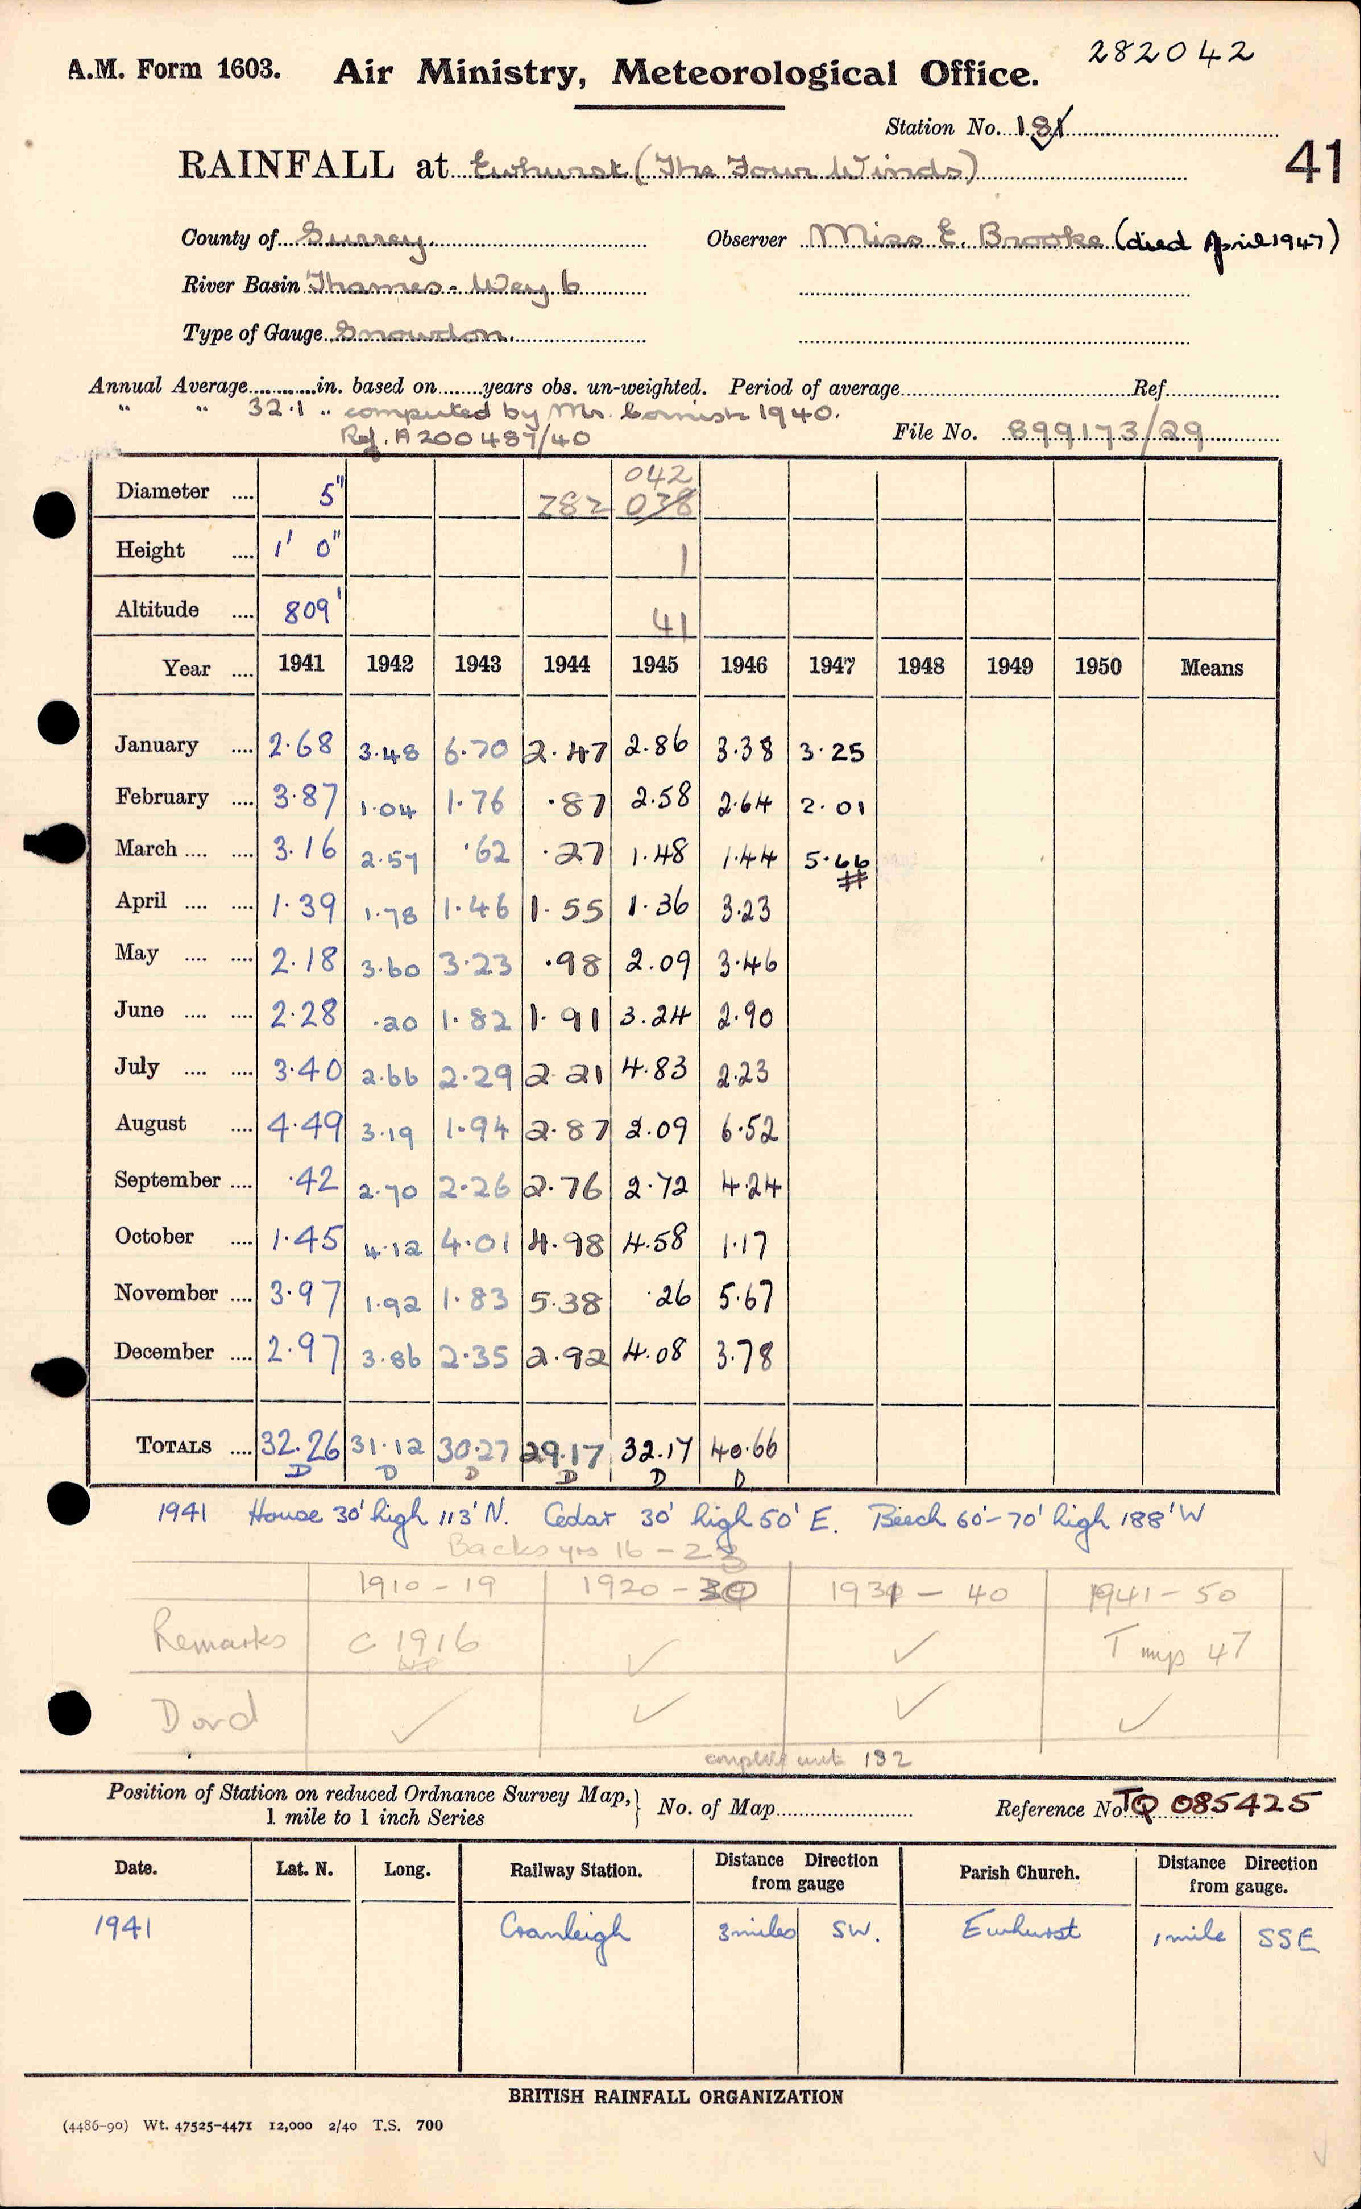 282042
A.M. Form 1603. Air Ministry, Meteorological Office.
Station No. 181
RAINFALL at Ewhurst (The Four Winds) 41
County of Surrey Observer Miss E. Brooke (died April 1947)
River Basin Thames - Wey b
Type of Gauge Snowdon.
Annual Average............in. based on........years obs. un-weighted. Period of average...... Ref......
" " 32.1 " computed by Mr. Cornish 1940.
Ref. A200487/40 File No. 899173/29
042
Diameter .... 5" 282 038
Height .... 1' 0" 1
Altitude .... 809' 41
Year .... 1941 1942 1943 1944 1945 1946 1947 1948 1949 1950 Means
January .... 2.68 3.48 6.70 2.47 2.86 3.38 3.25
February .... 3.87 1.04 1.76 .87 2.58 2.64 2.01
March .... .... 3.16 2.57 .62 .27 1.48 1.44 5.66
April .... .... 1.39 1.78 1.46 1.55 1.36 3.23
May .... .... 2.18 3.60 3.23 .98 2.09 3.46
June .... .... 2.28 .20 1.82 1.91 3.24 2.90
July .... .... 3.40 2.66 2.29 2.21 4.83 2.23
August .... 4.49 3.19 1.94 2.87 2.09 6.52
September .... .42 2.70 2.26 2.76 2.72 4.24
October .... 1.45 4.12 4.01 4.98 4.58 1.17
November .... 3.97 1.92 1.83 5.38 .26 5.67
December .... 2.97 3.86 2.35 2.92 4.08 3.78
TOTALS .... 32.26 31.12 30.27 29.17 32.17 40.66
D D D D D D
1941 House 30' high 113' N. Cedar 30' high 50' E. Beech 60'-70' high 188' W
Backs yrs 16 - 23
1910 - 19 1920 - 30 1931 - 40 1941 - 50
Remarks C 1916 ✓ ✓ T mip 47
Dord ✓ ✓ ✓ ✓
182
Position of Station on reduced Ordnance Survey Map,} No. of Map............ Reference No. TQ 085425
1 mile to 1 inch Series
Date. Lat. N. Long. Railway Station. Distance Direction from gauge Parish Church. Distance Direction from gauge.
1941 Cranleigh 3 miles SW. Ewhurst 1 mile SSE
BRITISH RAINFALL ORGANIZATION
(4486-90) Wt. 47525-4471 12,000 2/40 T.S. 700